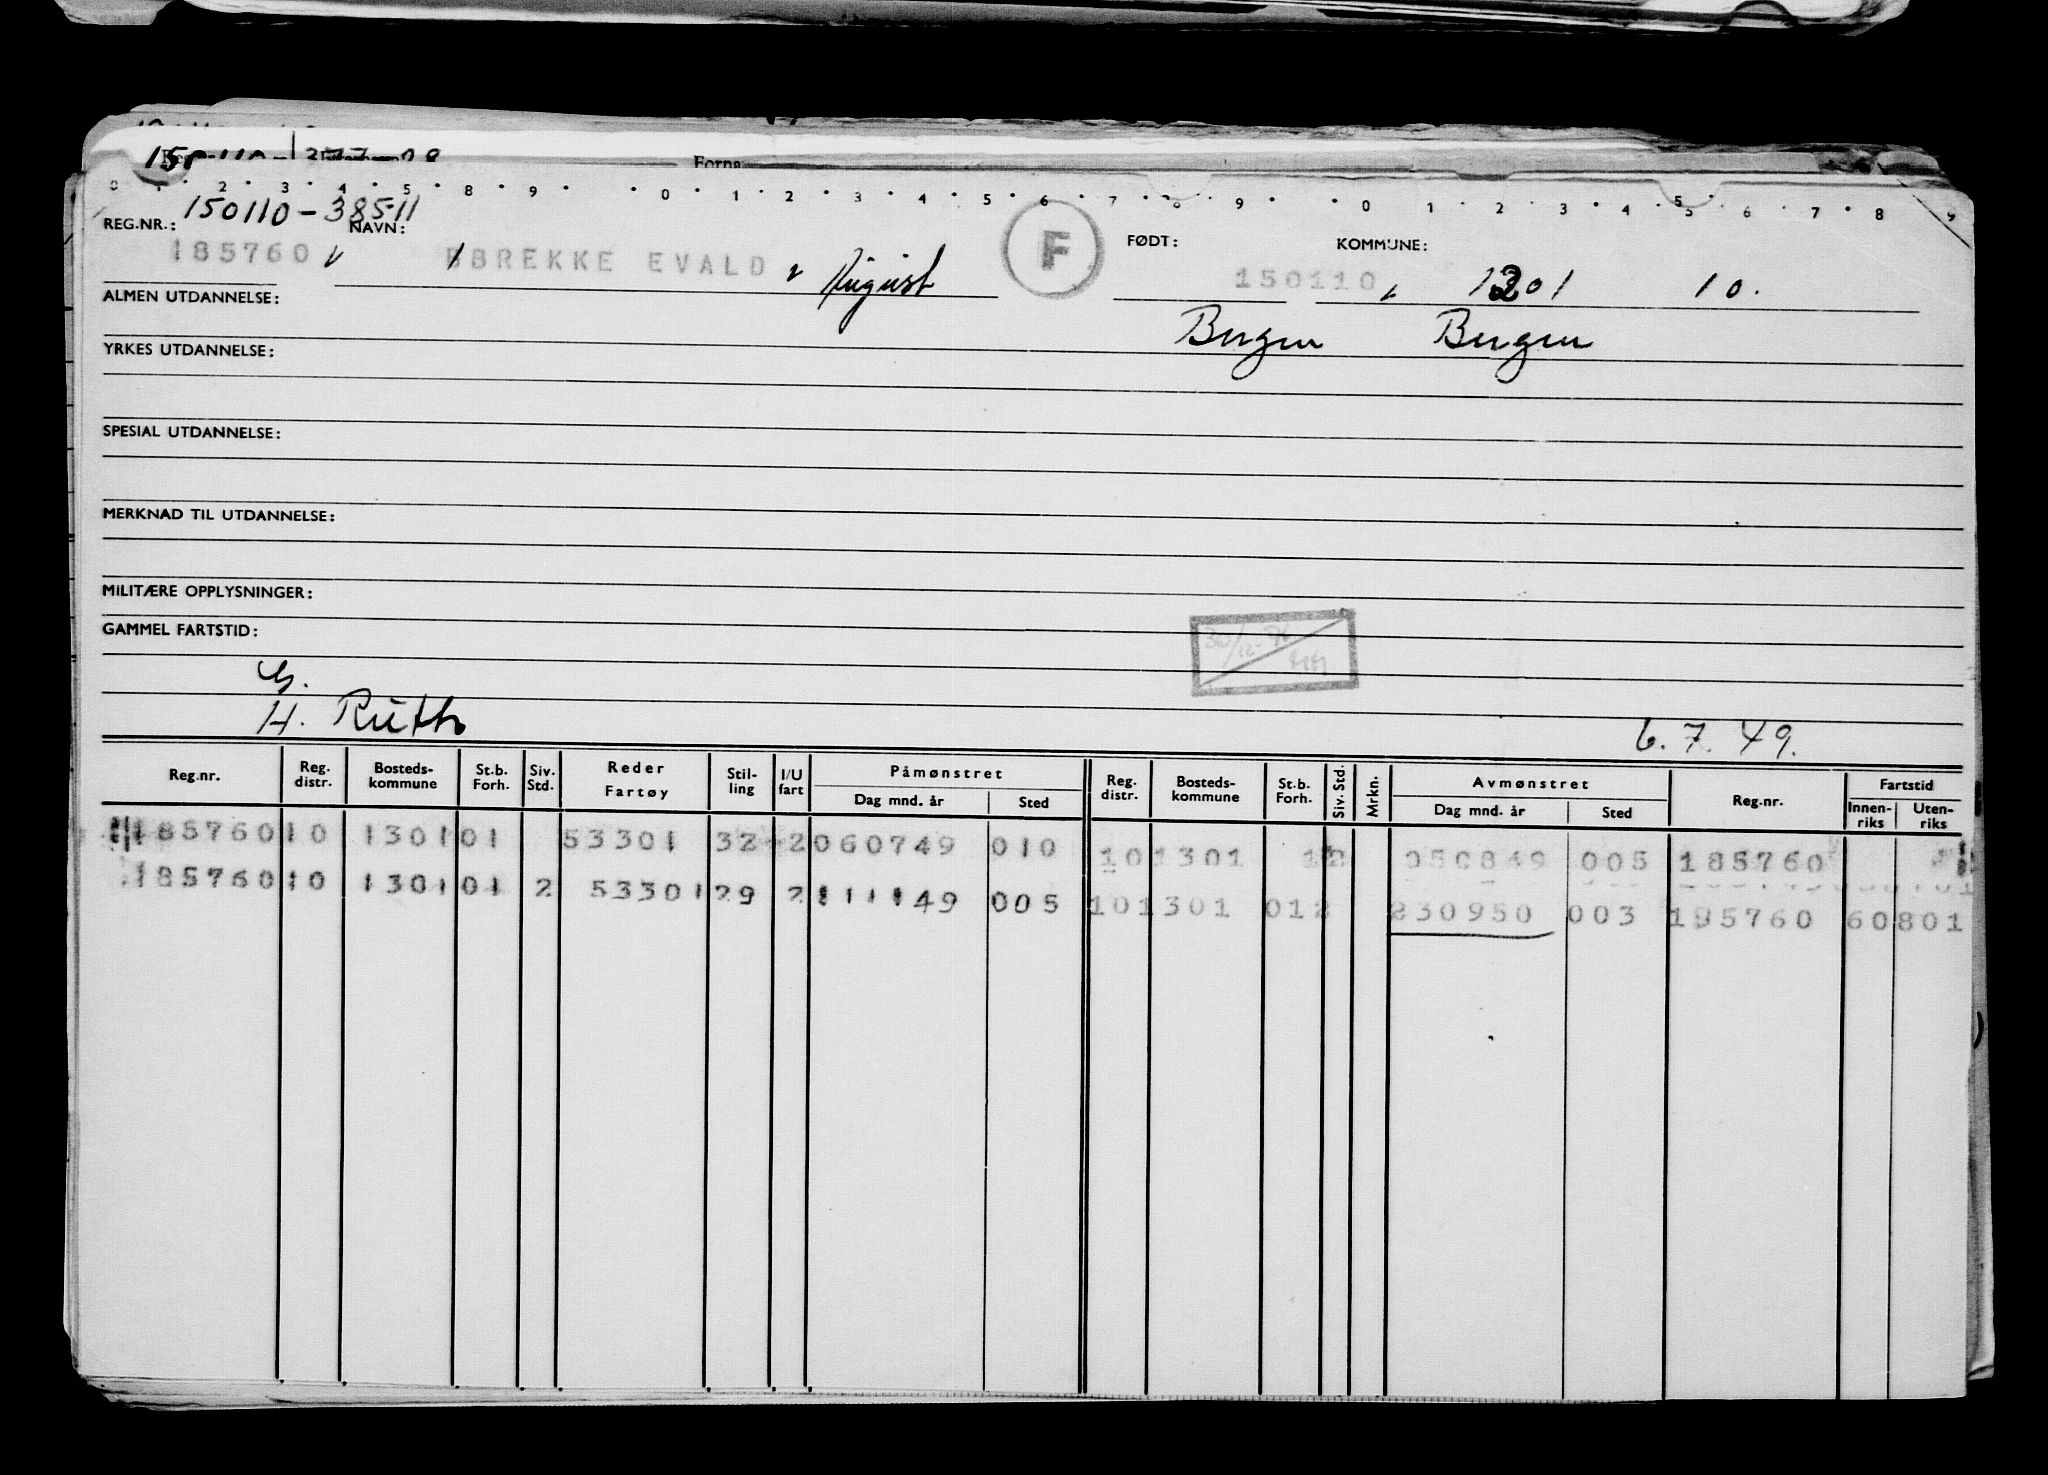 150110-377-98
Forna
0 1 2 3 4 5 8 9 0 1 2 3 4 5 6 7 8 9 0 1 2 3 4 5 6 7 8 9
150110-38511
REG.NR.: NAVN: F FØDT: KOMMUNE:
185760 BREKKE EVALD August 150110 1301 10.
ALMEN UTDANNELSE:
Bergen Bergen
YRKES UTDANNELSE:
SPESIAL UTDANNELSE:
MERKNAD TIL UTDANNELSE:
MILITÆRE OPPLYSNINGER:
GAMMEL FARTSTID:
30/12-76
G.
H. Ruth 6.7.49.
Reg.nr. Reg. distr. Bosteds- kommune St.b. Forh. Siv. Std. Reder Fartøy Stil- ling I/U fart Påmønstret Dag mnd. år Sted Reg. distr. Bosteds- kommune St.b. Forh. Siv. Std. Mrkn. Avmønstret Dag mnd. år Sted Reg.nr. Fartstid Innen- riks Uten- riks
185760 10 1301 01 53301 32 2 060749 010 10 1301 1 2 050849 005 185760
185760 10 1301 01 2 53301 29 2 111149 005 10 1301 01 2 230950 003 195760 60801